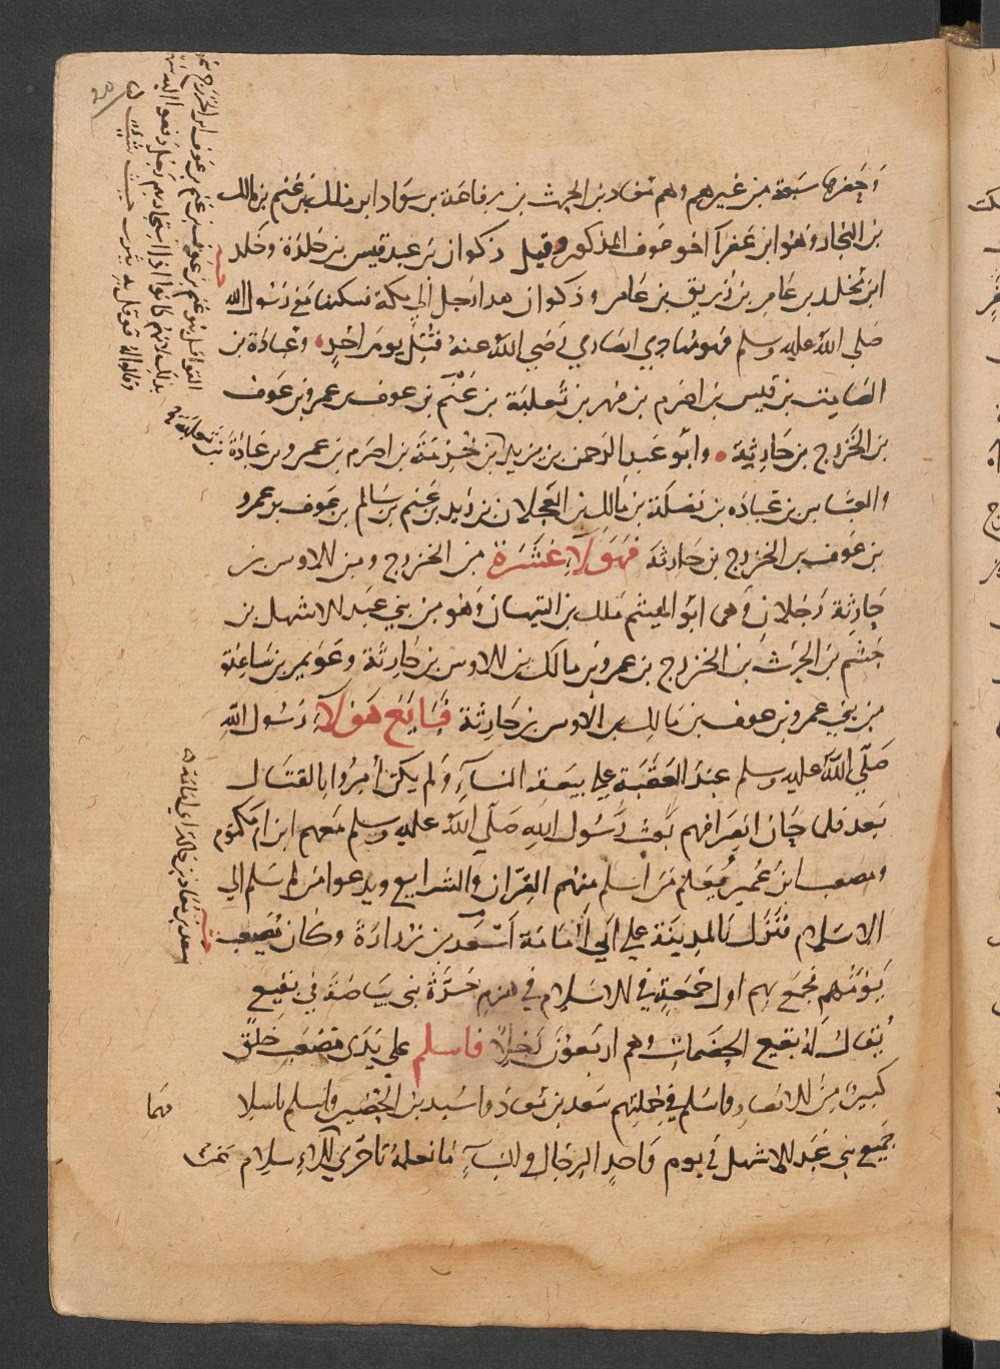 وحضرها سبعة من غيرهم وهم معاذ بن الحرث بن رفاعة بن سواد ابن ملك بن غنم بن مالك
بن النجار وهو ابن عفرآ اخو عوف المذكور وقيل ذكوان بن عبد قيس بن خلدة وخلد
ابن مخلد بن عامر بن زريق بن عامر وذكوان هذا رجل الي مكة فسكنها مع رسول الله
صلى الله عليه وسلم فهو مهاجري انصاري رضي الله عنه قتل يوم احد وعبادة بن
الصامت بن قيس بن اصرم بن فهر بن ثعلبة بن غنم بن عوف بن عمرو بن عوف
بن الخزرج بن حارثة وابو عبد الرحمن بن يزيد بن ثعلبة بن خزمة بن اصرم بن عمرو بن عبادة
والعباس بن عبادة بن نضلة بن مالك بن العجلان بن زيد بن غنم بن سالم بن عوف بن عمرو
بن عوف بن الخزرج بن حارثة فهولآء عشرة من الخزرج ومن الاوس بن
حارثة رجلان وهما ابو الهيثم ملك بن التيهان وهو من بني عبد الاشهل بن
جشم بن الحرث بن الخزرج بن عمرو بن مالك بن الاوس بن حارثة وعويمر بن ساعدة
من بني عمرو بن عوف بن مالك بن الاوس بن حارثة فبايع هولآء رسول الله
صلى الله عليه وسلم عند العقبة علي بيعة النسآء ولم يكن أمروا بالقتال
بعد فلما حان انصرافهم بعث رسول الله صلى الله عليه وسلم معهم ابن ام مكتوم
ومصعب ابن عمير يعلم من اسلم منهم القرآن والشرايع ويدعوا من لم يسلم الي
الاسلام فنزل بالمدينة علي ابي أمامة أسعد بن زرارة وكان مصعب
يؤمهم فجمع بهم اول جمعة في الاسلام في هزم حرة بني بياضة في نقيع
يقال له نقيع الخضمات وهم اربعون رجلا فاسلم علي يدي مصعب خلق
كثير من الانصار واسلم في جملتهم سعد بن معاذ واسيد بن الحضير واسلم باسلا
مهما
جميع بني عبد الاشهل في يوم واحد الرجال والنسآء ما نعلمه تاخر عن الاسلام
القواقل بنو غنم بن عوف بن عمرو بن عوف ابن الخزرج
بذلك لانهم كانوا اذا استجار بهم رجل دفعوا اليه
وقالوا له قوقل به يثرب حيث شيت